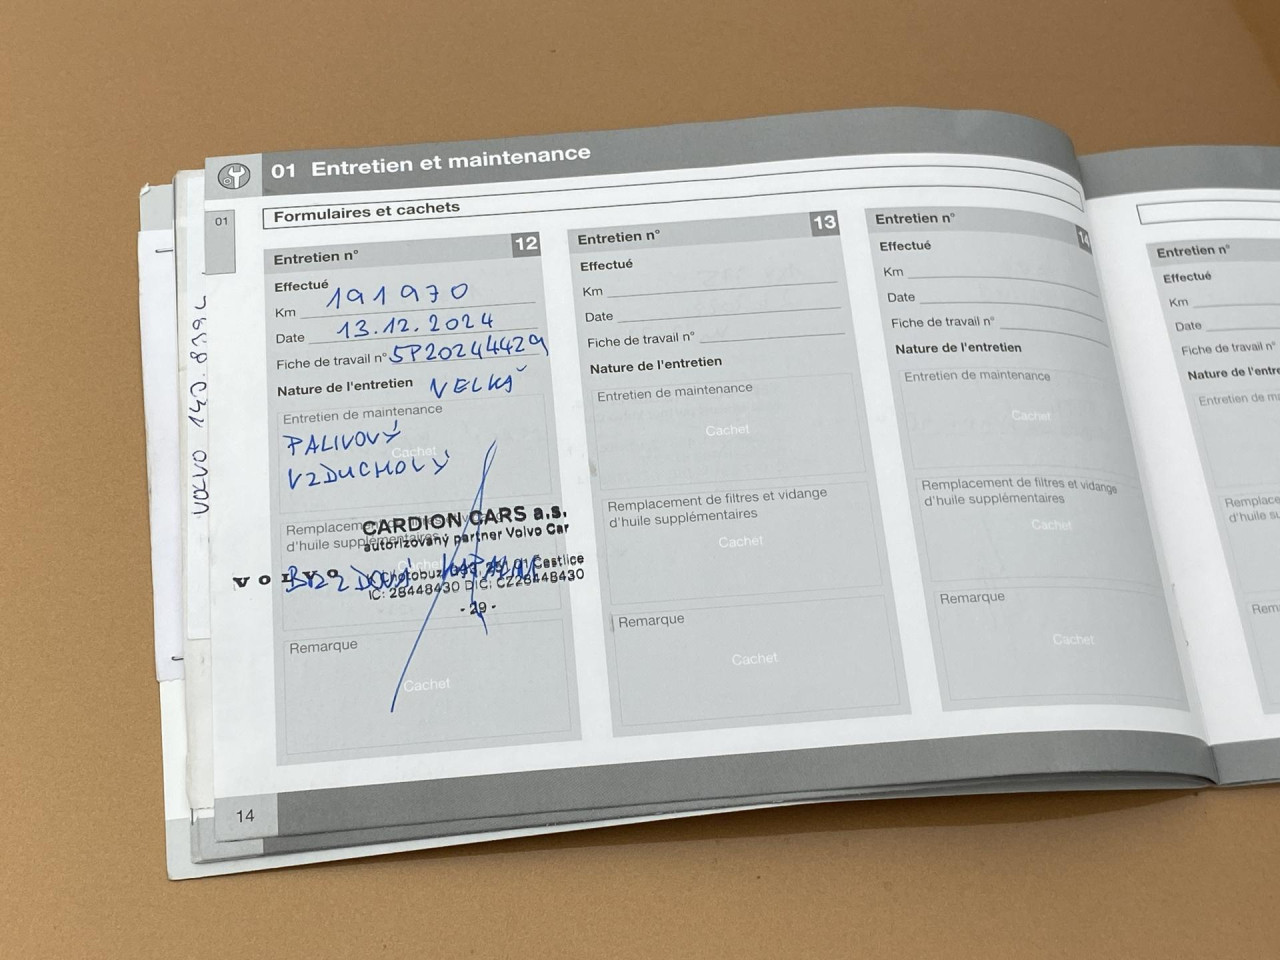 01 Entretien et maintenance
01
Formulaires et cachets
Entretien n° 12
Effectué
Km 191970
Date 13.12.2024
Fiche de travail n° SP20244429
Nature de l'entretien VELKÁ
Entretien de maintenance
PALIVOVÝ
Cachet
VZDUCHOVÝ
Remplacement
d'huile supplémentaires
CARDION CARS a.s.
autorizovaný partner Volvo Car
VOLVO
BRZDOVÁ KAPALINA
Čestlice
IČ: 28448430 DIČ: CZ28448430
- 29 -
Remarque
Cachet
14
VOLVO
Entretien n° 13
Effectué
Km
Date
Fiche de travail n°
Nature de l'entretien
Entretien de maintenance
Cachet
Remplacement de filtres et vidange
d'huile supplémentaires
Cachet
Remarque
Cachet
Entretien n° 14
Effectué
Km
Date
Fiche de travail n°
Nature de l'entretien
Entretien de maintenance
Cachet
Remplacement de filtres et vidange
d'huile supplémentaires
Cachet
Remarque
Cachet
Entretien n°
Effectué
Km
Date
Fiche de travail n°
Nature de l'entre
Entretien de ma
Remplace
d'huile su
Rem